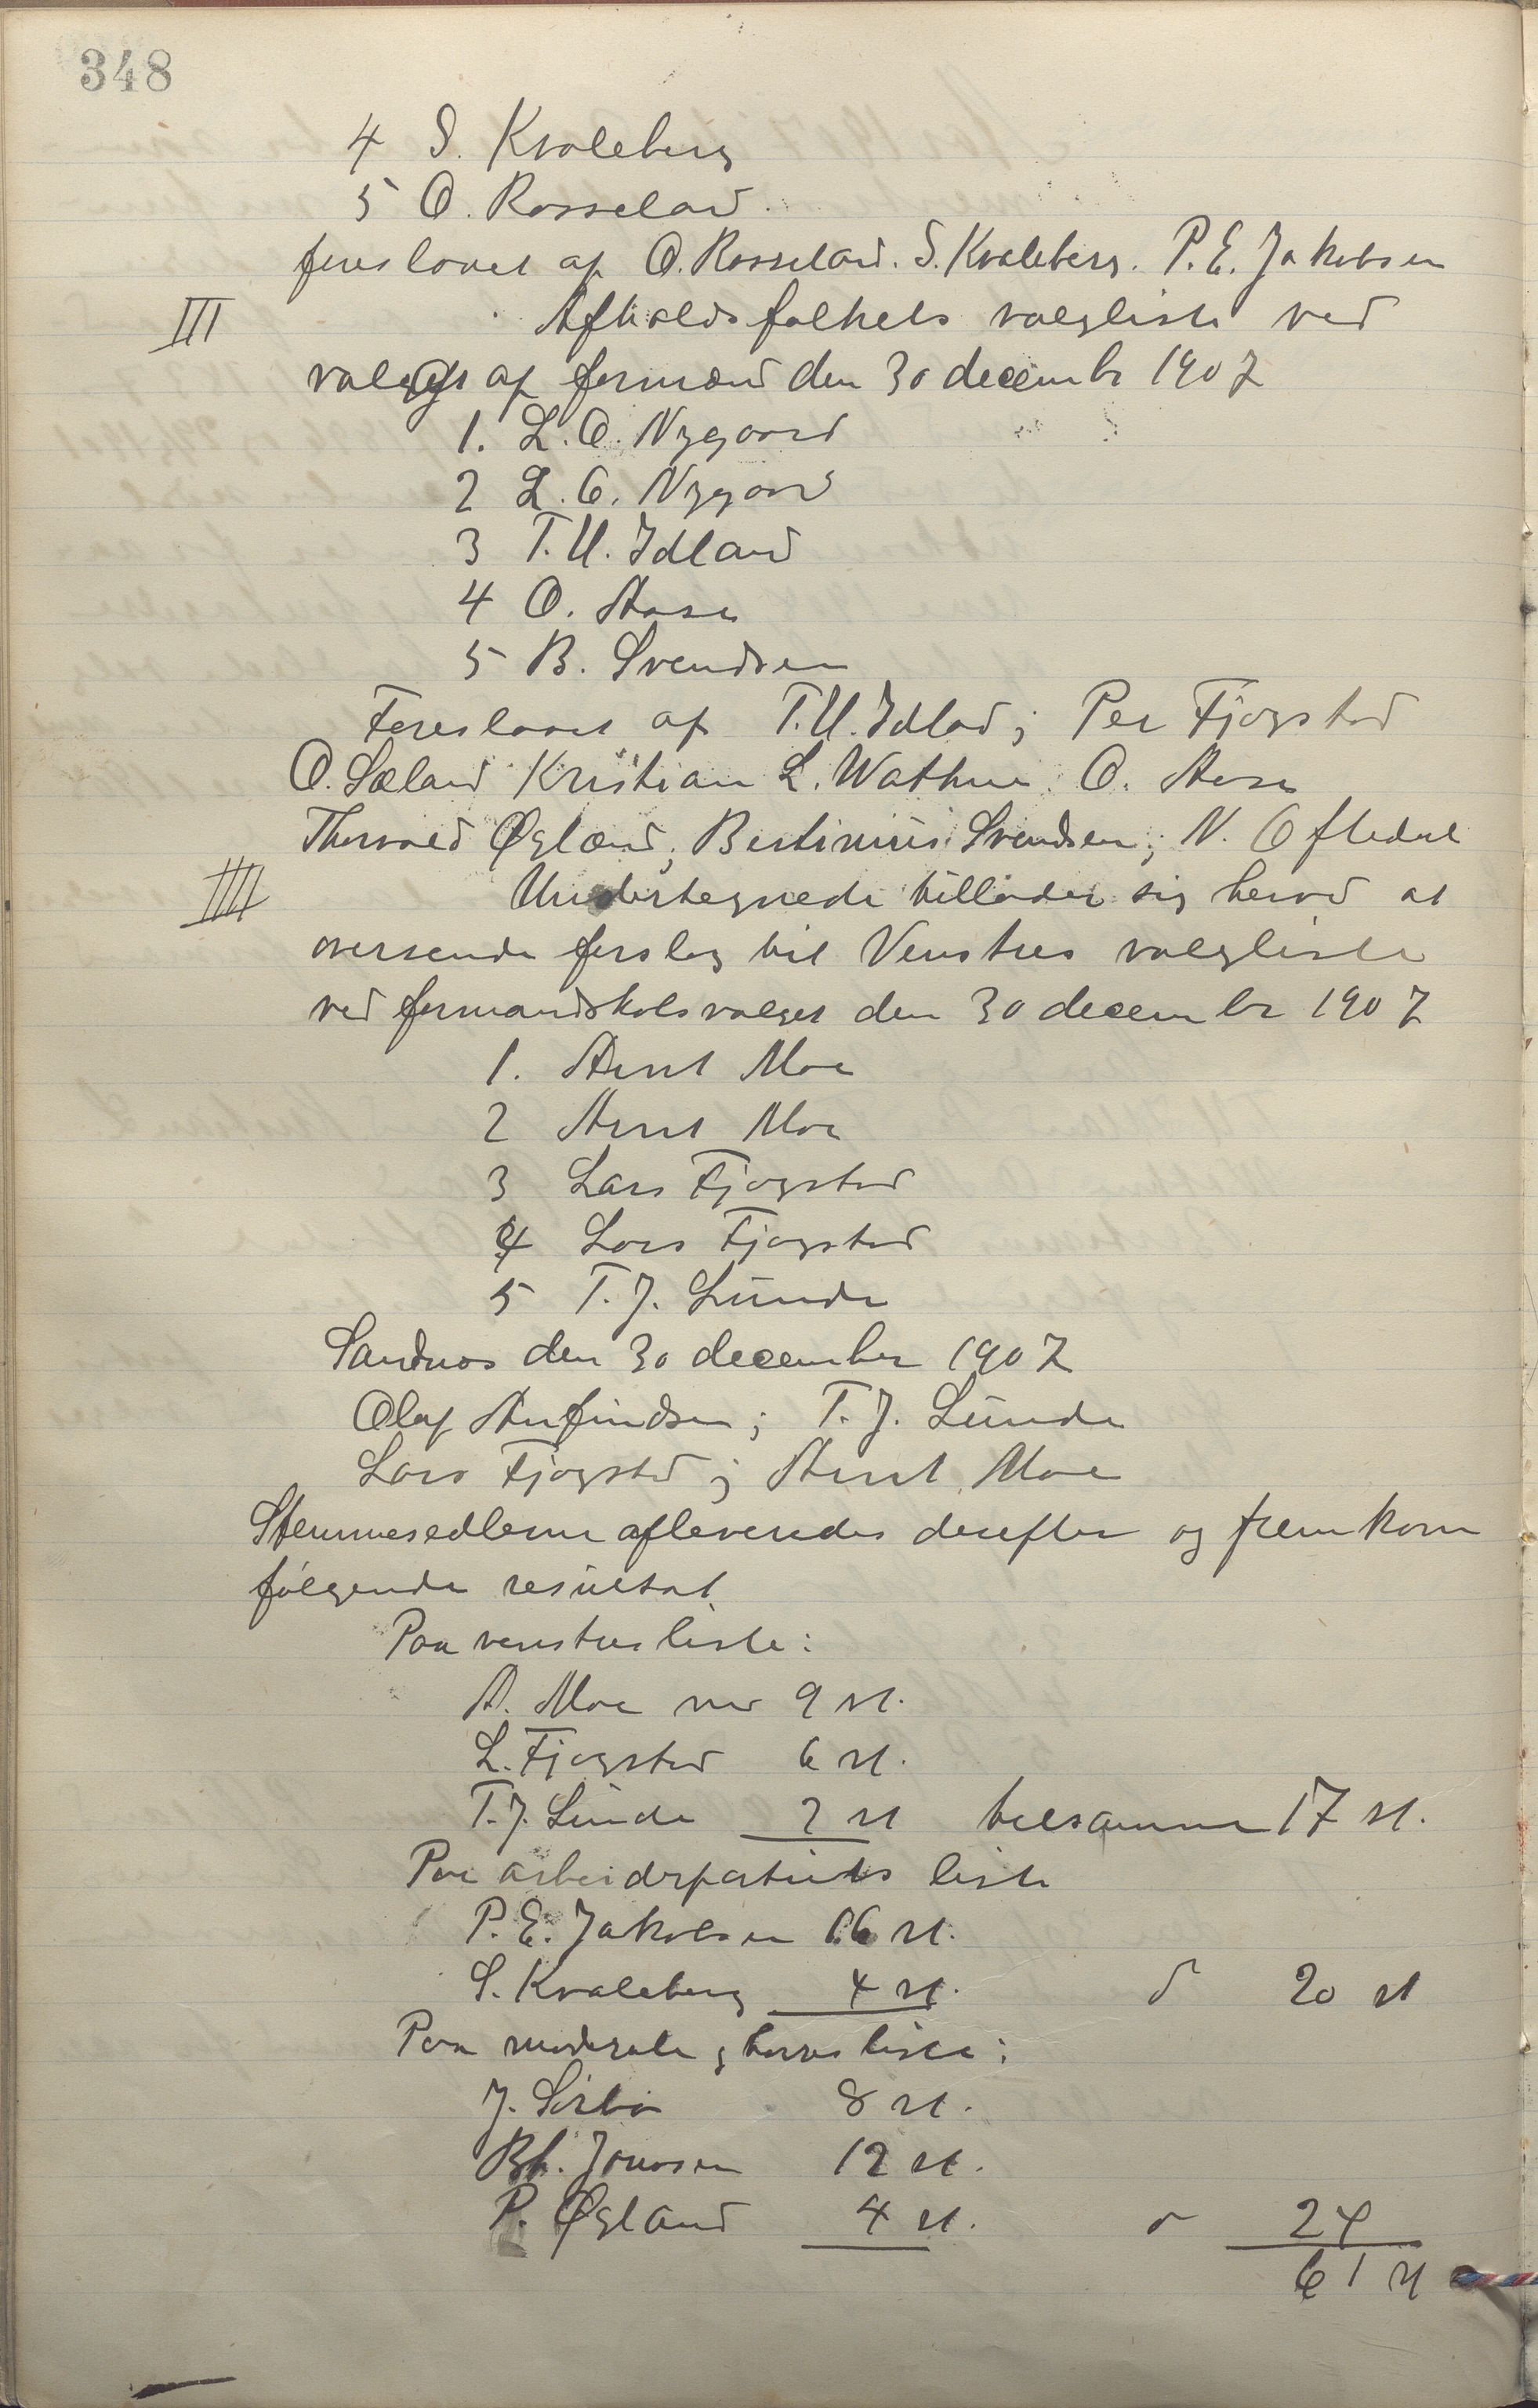 348
4 S. Kvaleberg
5 O. Rosseland.
foreslaaet af O. Rosseland. S. Kvaleberg. P. E. Jakobsen
III Afholdsfolkets valgliste ved
valget af formænd den 30 decembr 1907
1. L. O. Nygaard
2 L. O. Nygaard
3 T. U. Idland
4 O. Aase
5 B. Svendsen
Foreslaaet af T. U. Idlad; Per Fjogstad
O. Sæland Kristian L. Wathne. O. Aase
Thorvald Øgland; Bertinius Svendsen; N. Oftedal
IIII Undertegnede tillader sig herved at
oversende forslag til Venstres valgliste
ved formandskabsvalget den 30 decembr 1907
1. Arnt Moe
2 Arnt Moe
3 Lars Fjogstad
4 Lars Fjogstad
5 T. J. Lunde
Sandnes den 30 december 1907
Olaf Anfindsen; T. J. Lunde
Lars Fjogstad; Arnt Moe
Stemmesedlerne afleveredes derefter og fremkom
følgende resultat
Paa venstres liste:
A. Moe 9 st.
L. Fjogstad 6 st.
T. J. Lunde 2 st tilsammen 17 st.
Paa arbeiderpartiets liste
P. E. Jakobsen 16 st.
S. Kvaleberg 4 st. d 20 st
Paa moderate g høires liste:
J. Sørbø 8 st.
Bh. Jonassen 12 st.
P. Øgland 4 st. d 24
61 st